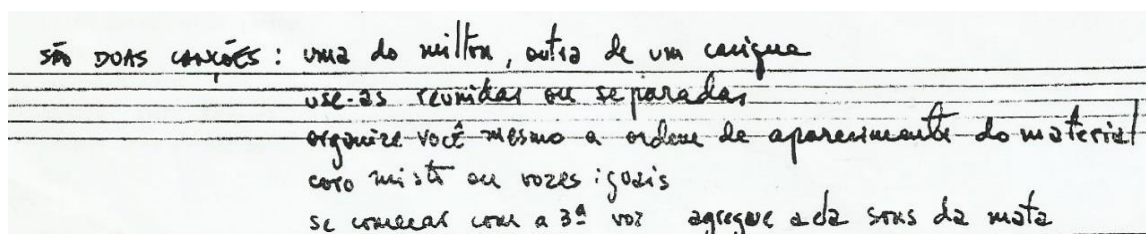 SÃO DUAS CANÇÕES: uma do milton, outra de um cacique
use-as reunidas ou separadas
organize você mesmo a ordem de aparecimento do material
coro misto ou vozes iguais
se começar com a 3ª voz agregue a da sons da mata